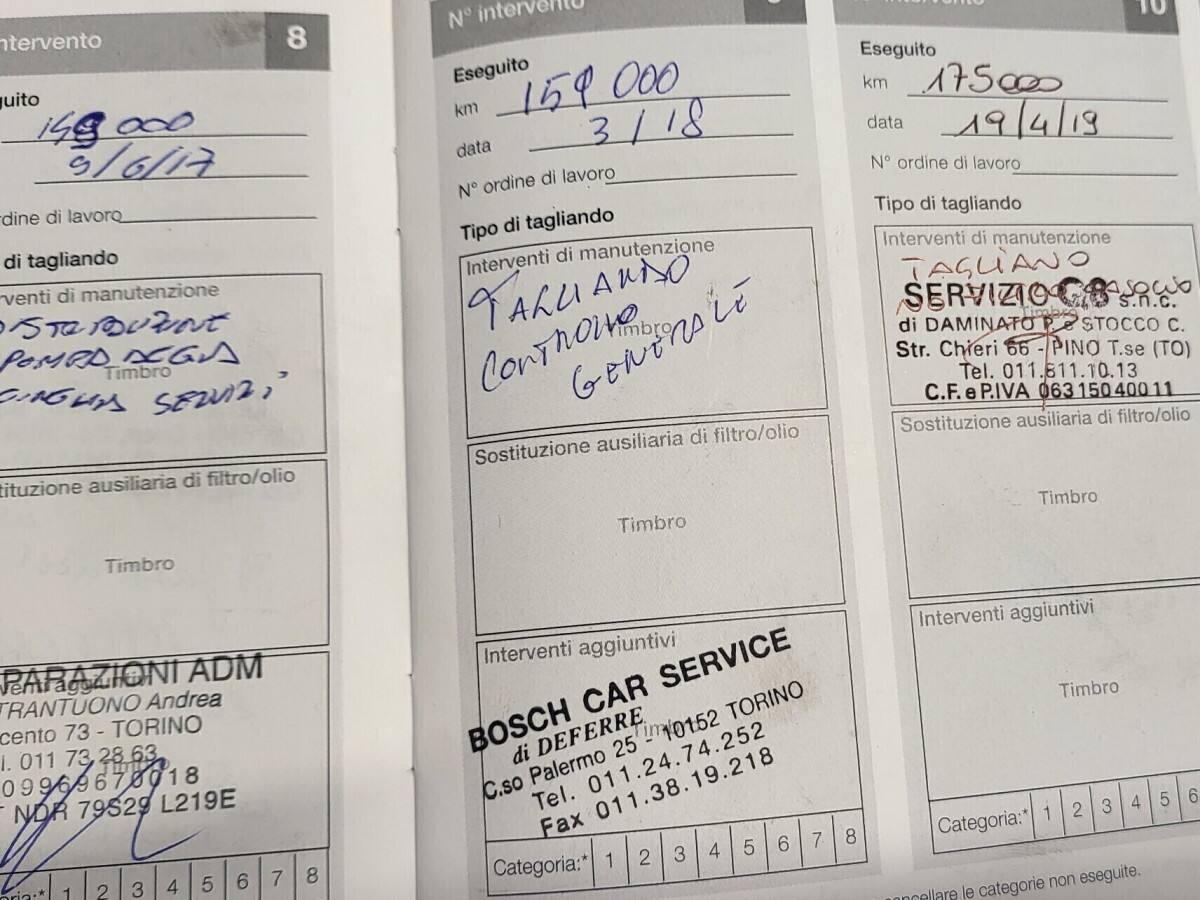 ntervento 8
guito
000
9/6/17
rdine di lavoro
di tagliando
venti di manutenzione
DISTRIBUZIONE
POMPA ACQUA
Timbro
CINGHIA SERVIZI
tituzione ausiliaria di filtro/olio
Timbro
PARAZIONI ADM
venti aggiuntivi
TRANTUONO Andrea
cento 73 - TORINO
l. 011 73 28 63
Timbro
09969670018
NDR 79S29 L219E
ria:* 1 2 3 4 5 6 7 8
N° intervento
Eseguito
km 159 000
data 3/18
N° ordine di lavoro
Tipo di tagliando
Interventi di manutenzione
TAGLIANDO
CONTROLLO
Timbro
GENERALE
Sostituzione ausiliaria di filtro/olio
Timbro
Interventi aggiuntivi
BOSCH CAR SERVICE
di DEFERRE
Timbro
C.so Palermo 25 - 10152 TORINO
Tel. 011.24.74.252
Fax 011.38.19.218
Categoria:* 1 2 3 4 5 6 7 8
10
Eseguito
km 175000
data 19/4/19
N° ordine di lavoro
Tipo di tagliando
Interventi di manutenzione
TAGLIANO
SERVIZIO s.n.c.
Timbro
di DAMINATO P. e STOCCO C.
Str. Chieri 66 - PINO T.se (TO)
Tel. 011.811.10.13
C.F. e P.IVA 06315040011
Sostituzione ausiliaria di filtro/olio
Timbro
Interventi aggiuntivi
Timbro
Categoria:* 1 2 3 4 5 6
ncellare le categorie non eseguite.